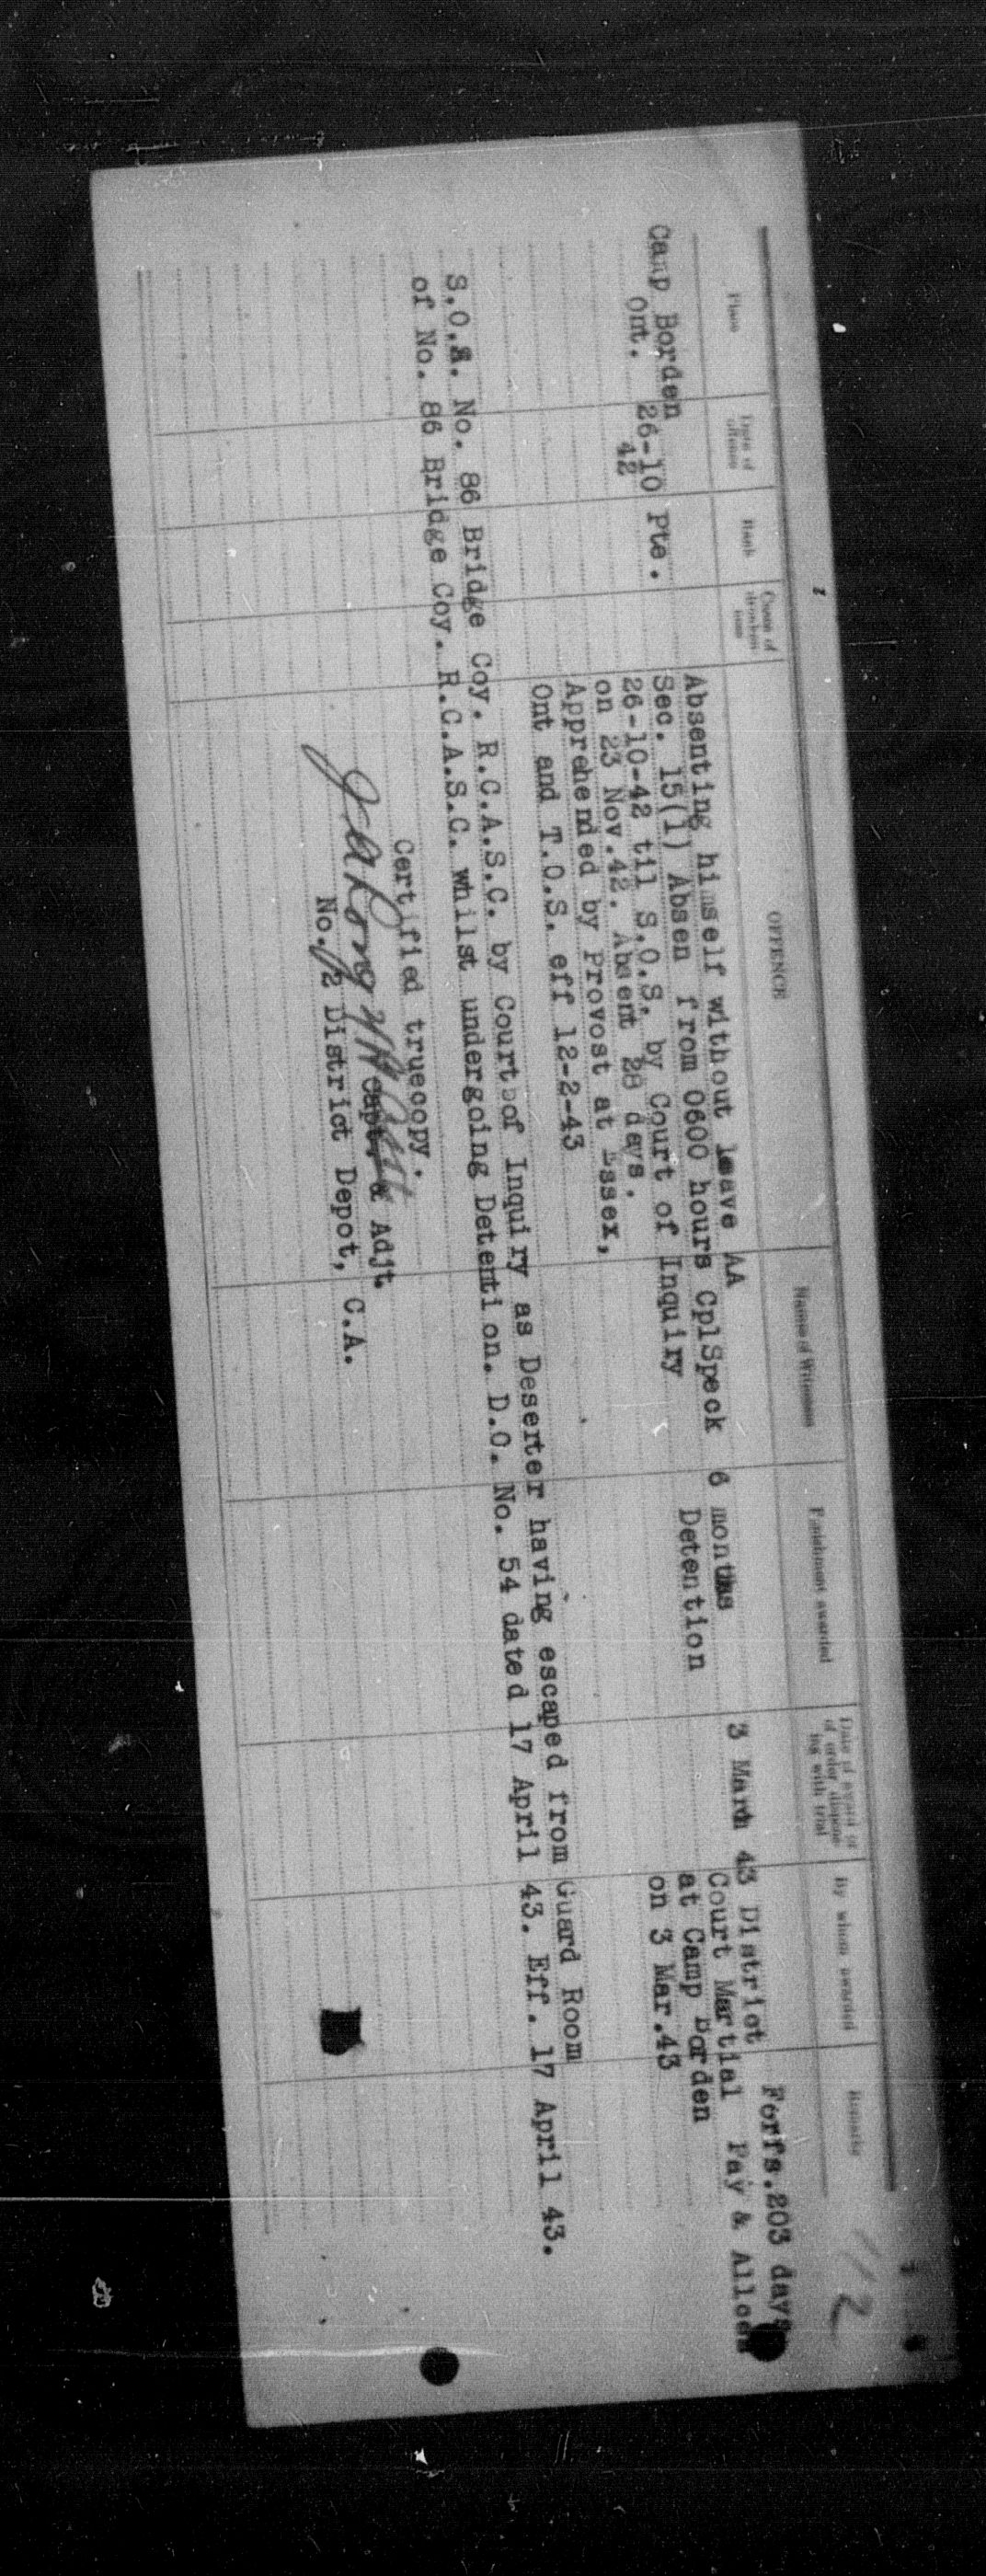 112
Place
Date of offence
Rank
Cases of drunkenness
OFFENCE
Names of Witnesses
Punishment awarded
Date of award or of order dispensing with trial
By whom awarded
Remarks
Camp Borden
Ont.
26-10
42
Pte.
Absenting himself without leave AA
Sec. 15(1) Absen from 0600 hours
26-10-42 til S.O.S. by Court of Inquiry
on 23 Nov.42. Absent 28 days.
Apprehended by Provost at Essex,
Ont and T.O.S. eff 12-2-43
CplSpeck
6 months
Detention
3 March 43
District
Court Martial
at Camp Borden
on 3 Mar.43
Forfs.203 days
Pay & Allces
S.O.S. No. 86 Bridge Coy. R.C.A.S.C. by Court of Inquiry as Deserter having escaped from Guard Room
of No. 86 Bridge Coy. R.C.A.S.C. whilst undergoing Detention. D.O. No. 54 dated 17 April 43. Eff. 17 April 43.
Certified truecopy.
Capt. & Adjt.
No. 2 District Depot, C.A.